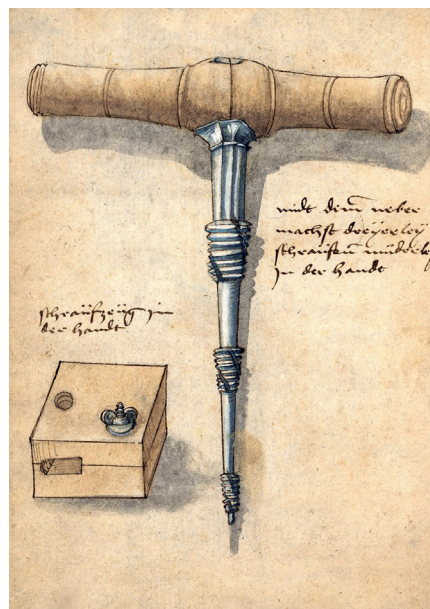 midt dem neber
machst dreÿerleÿ
schraüfen müderle
In der handt
schraüfzeüg in
der handt